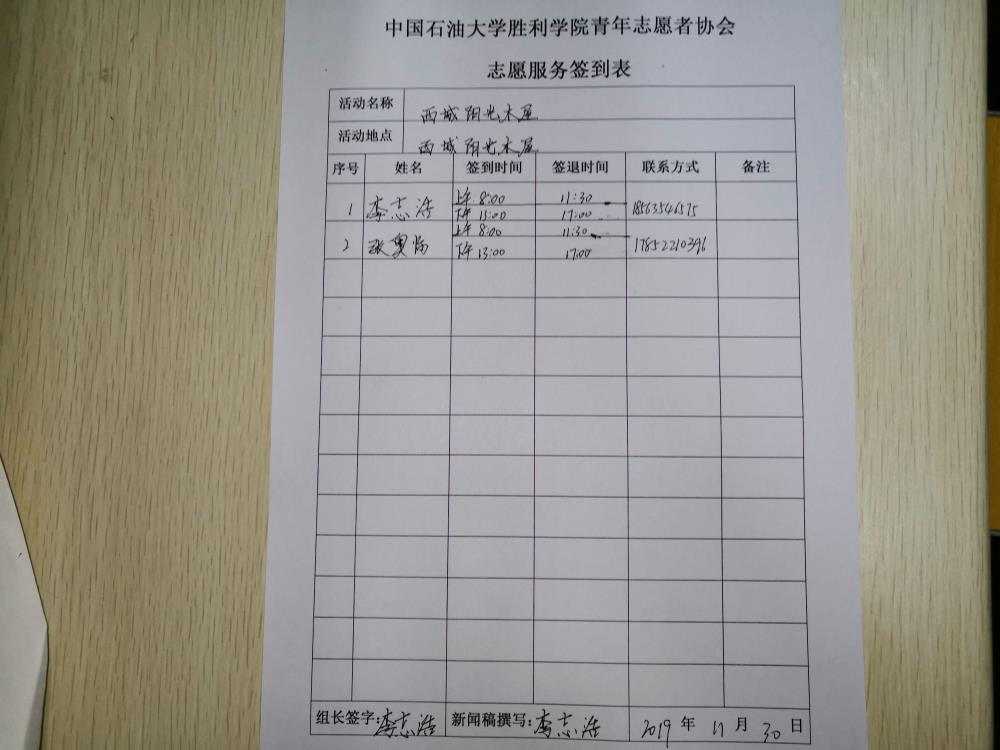 中国石油大学胜利学院青年志愿者协会
志愿服务签到表
活动名称 西城阳光木屋
活动地点 西城阳光木屋
序号 姓名 签到时间 签退时间 联系方式 备注
上午 8:00 11:30
1 李志浩 下午 13:00 17:00 18563546575
上午 8:00 11:30
2 张 下午 13:00 17:00 17852210396
组长签字:李志浩 新闻稿撰写:李志浩 2019 年 11 月 30 日